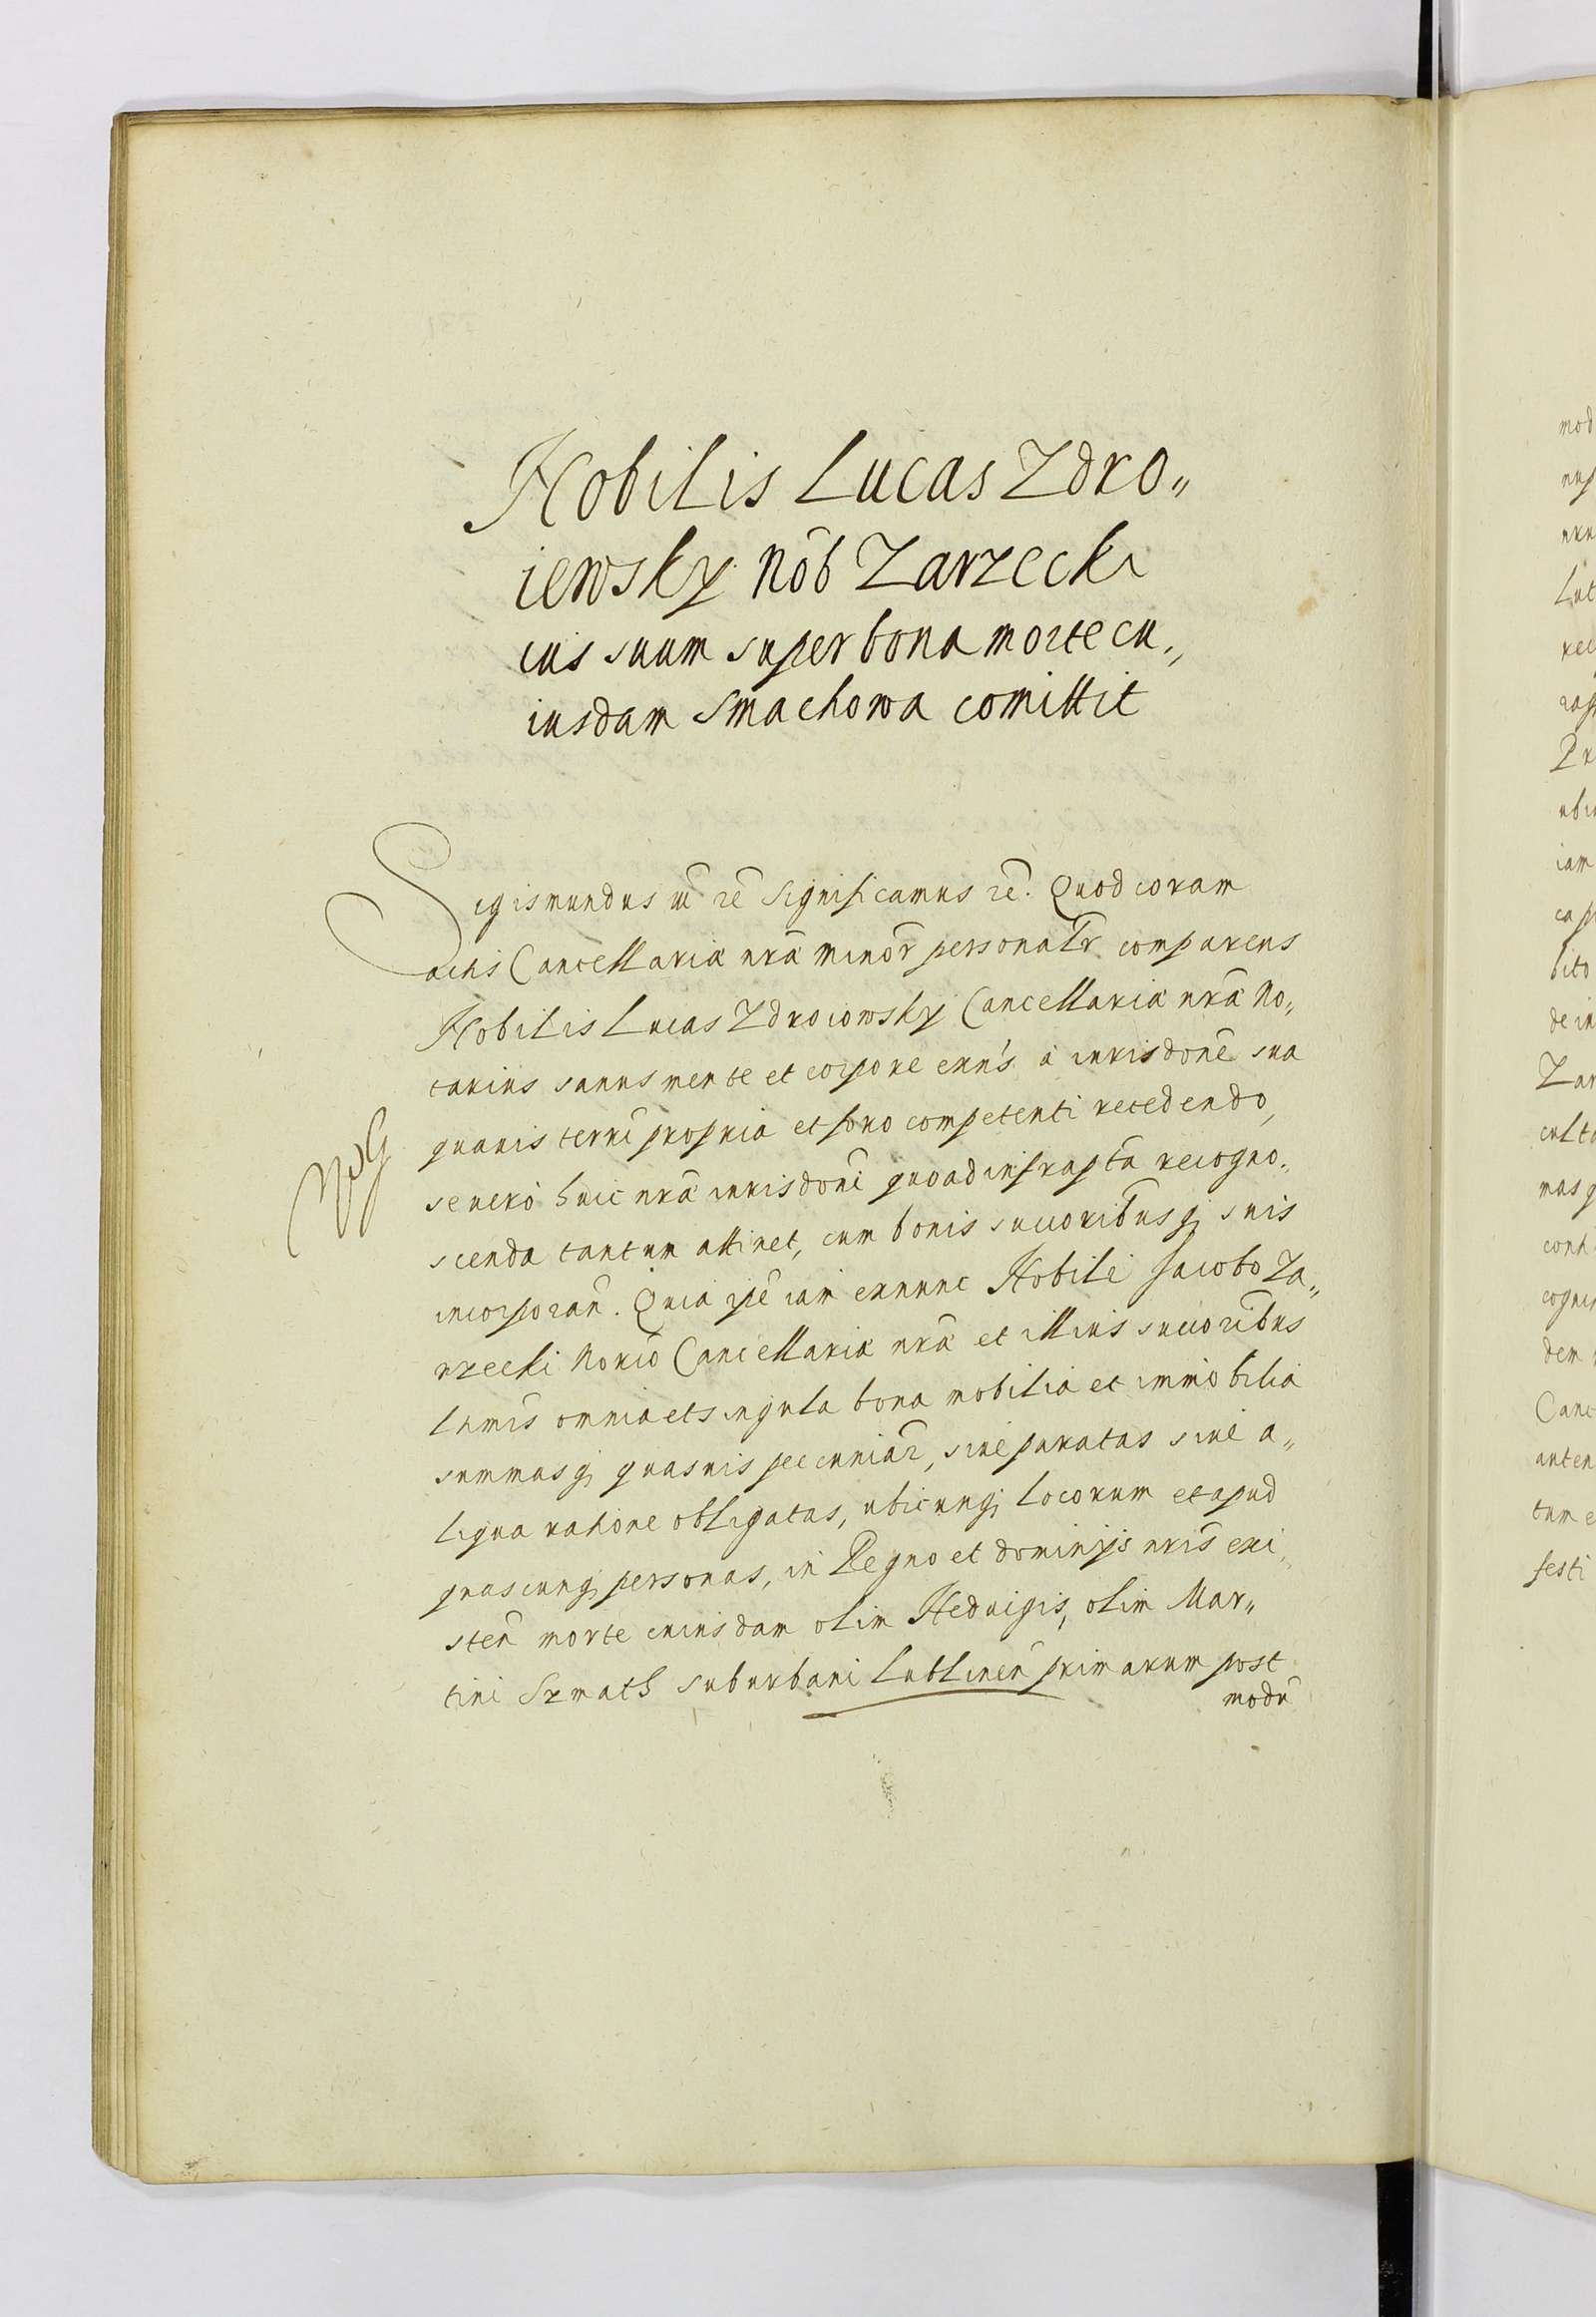 Nobilis Lucas Zdro„
iewsky Nob̃ Zarzecki
ius suum super bona morte cu„
iusdam Smachowa comittit
Sigismundus iii rẽ Significamus rẽ. Quod coram
actis Cancellariæ nrã minor̃ personalr̃ comparens
Nobilis Lucas Zdroiowsky Cancellariæ nrã No„
tarius sanus mente et corpore exñs a iurisdonẽ sua
quauis terrĩ propria et foro competenti recedendo,
se uero huic nrã iurisdonĩ quoad infraptã recogno„
scenda tantum attinet, cum bonis succoribus̃q; suis
incorporañ. Quia ipẽ iam exnunc Nobili Jacobo Za„
rzecki Norio Cancellariæ nrã et illius succoribus̃
ltimĩs omnia et singula bona mobilia et immobilia
summasq; quasuis pecuniar̃, siue paratas siue a„
liqua ratione obligatas, ubicunq; locorum et apud
quascunq; personas, in Regno et dominijs nrĩs exi„
steñ morte cuiusdam olim Heduigis, olim Mar„
tini Szmath suburbani Lublineñ primarum post
modũ
mod
nup
Lut
rec
Pr
ubi
iam
cap
bito
de in
Zar
culta
mas q
cogni
dem
Canc
autem
tum e
festi